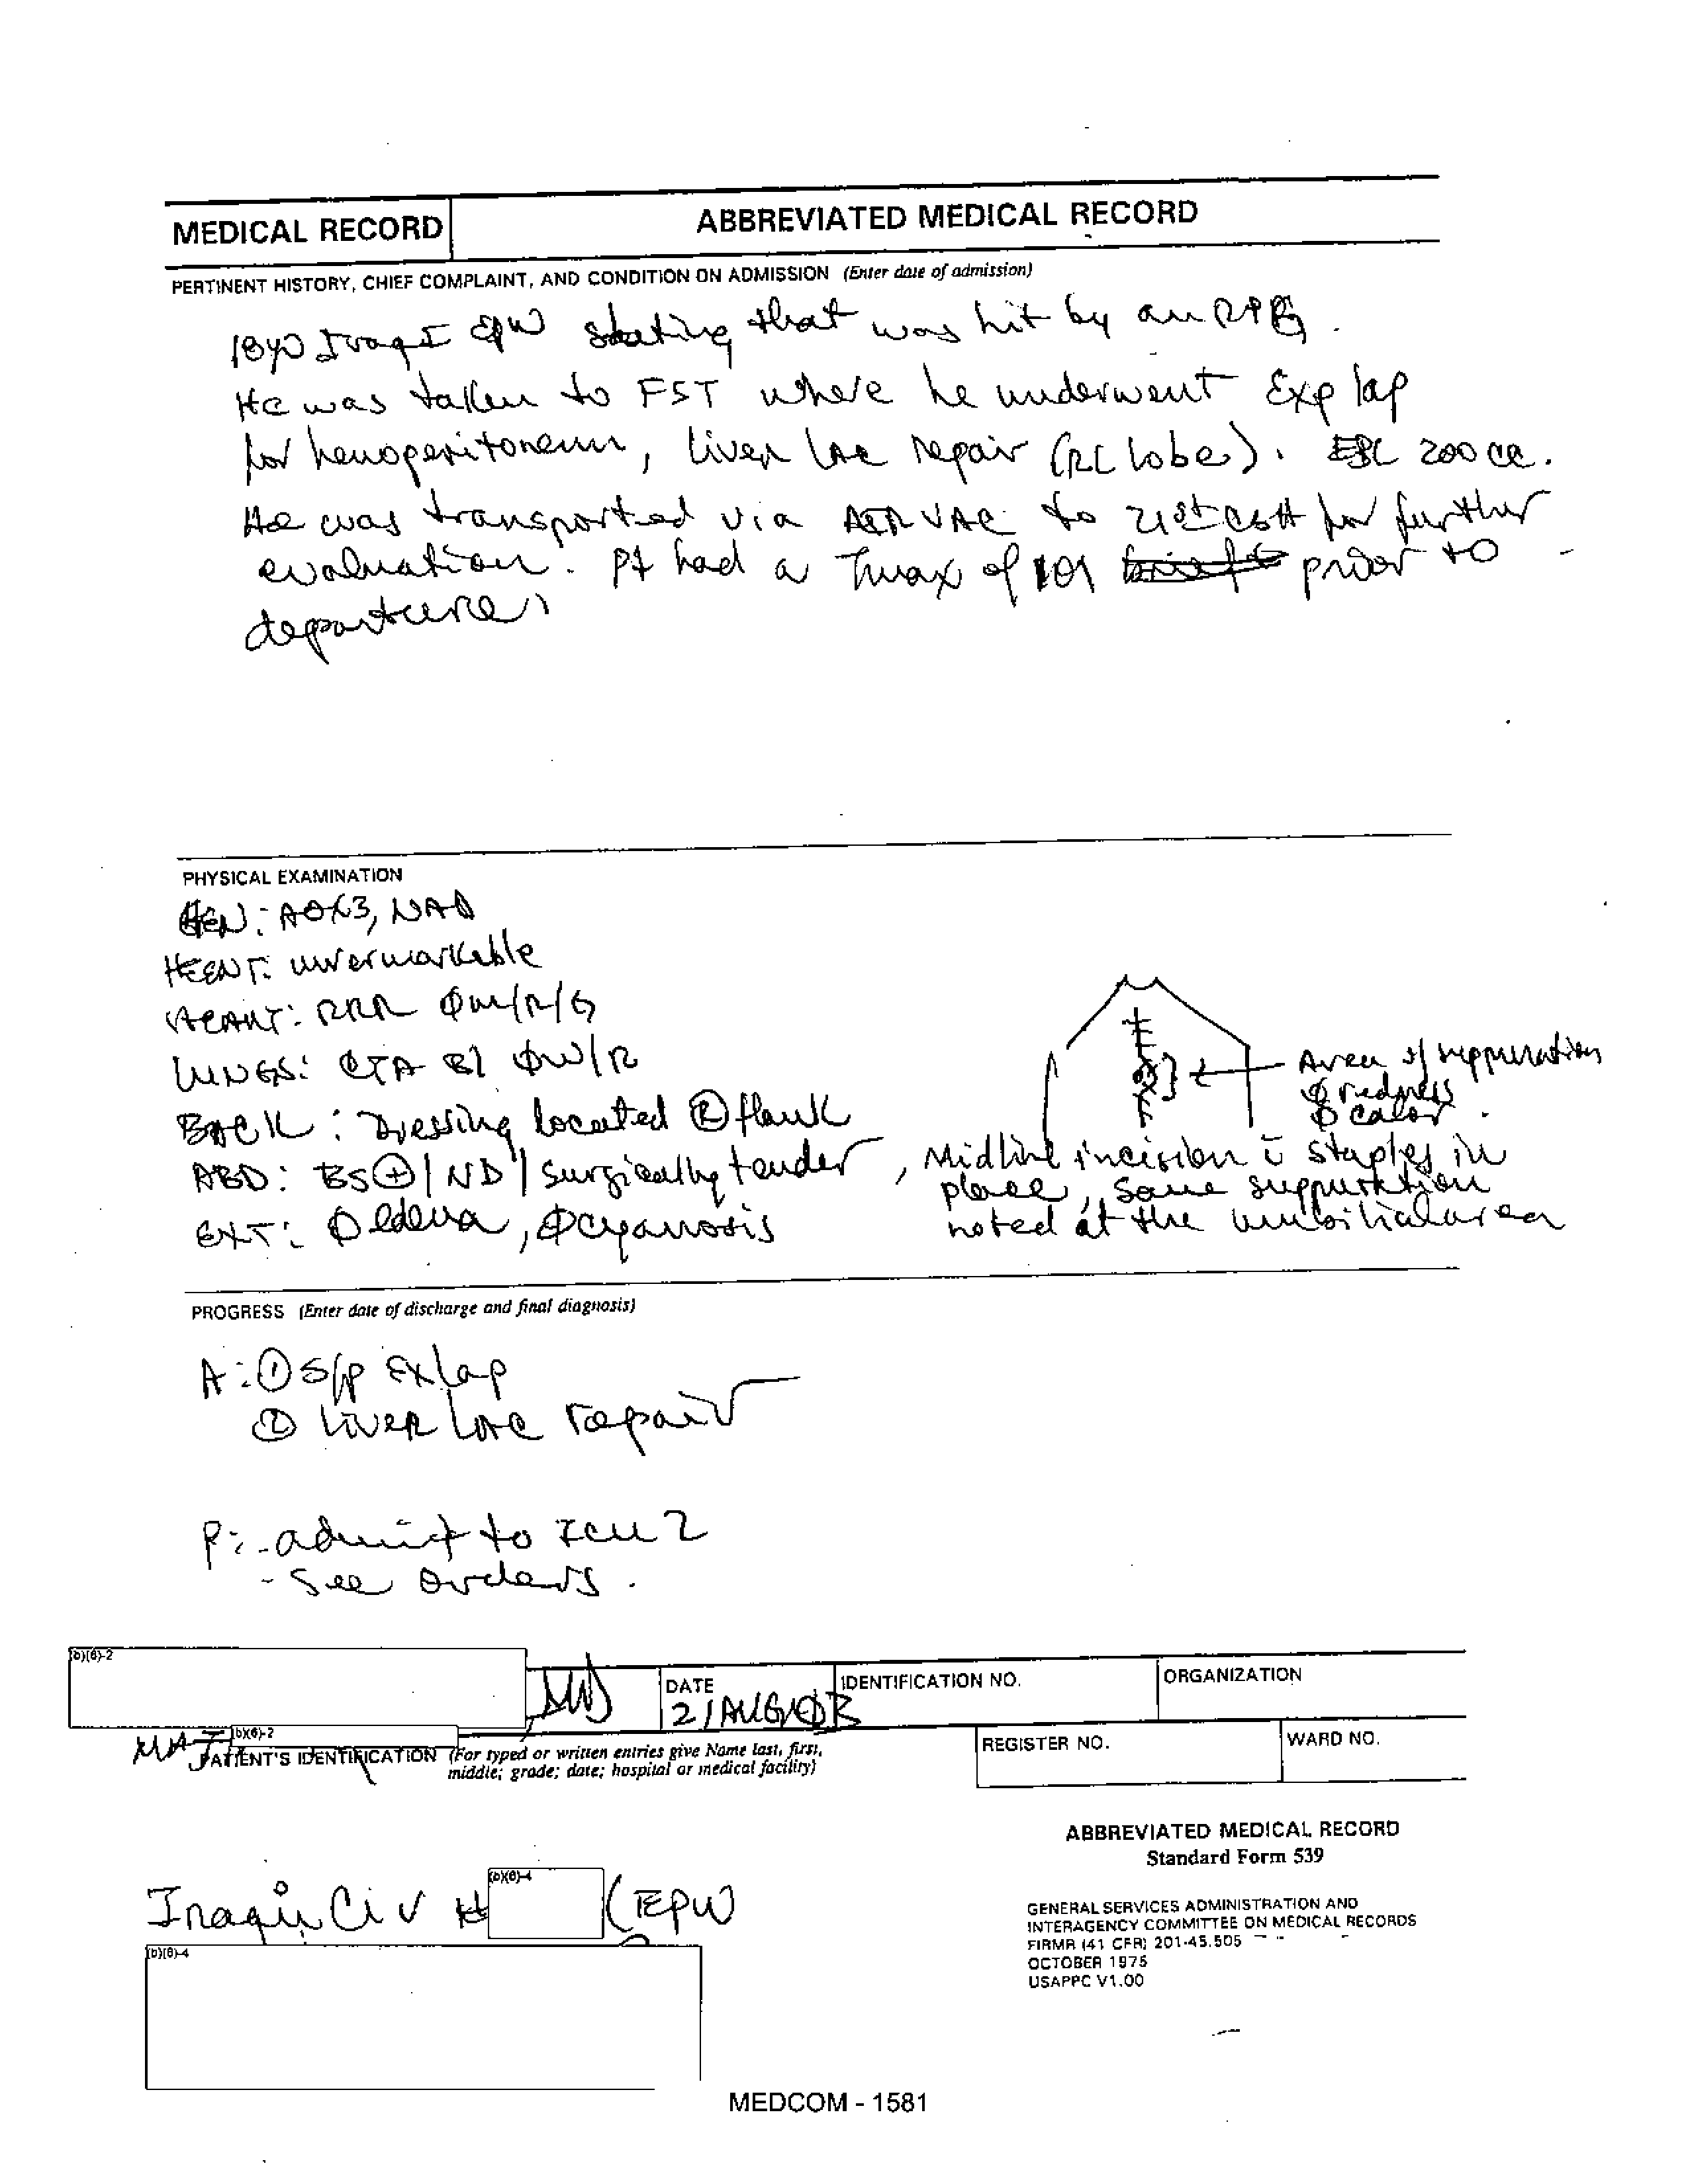 MEDICAL RECORD
ABBREVIATED MEDICAL RECORD
PERTINENT HISTORY, CHIEF COMPLAINT, AND CONDITION ON ADMISSION (Enter date of admission)
18yo IraqI EPW stating that was hit by an RPG.
He was taken to FST where he underwent Exp lap
for hemoperitoneum, liver lac repair (RL lobe). EBL 200 cc.
He was transported via AERVAC to 21st CSH for further
evaluation. Pt had a Tmax of 101 prior to
departure.
PHYSICAL EXAMINATION
GEN: AOX3, NAD
HEENT: unremarkable
HEART: RRR Ø M/R/G
LUNGS: CTA BL Ø W/R
BACK: Dressing located Ⓡ flank
ABD: BS ⊕ / ND / surgically tender, Midline incision c̄ staples in
place, some suppuration
noted at the umbilical area
EXT: Ø edema, Ø cyanosis
Area of suppuration
Ø redness
Ø calor
PROGRESS (Enter date of discharge and final diagnosis)
A: ① S/P Ex lap
② Liver lac repair
P: - admit to ICU 2
- See orders.
(b)(6)-2
MD
DATE
21AUG03
IDENTIFICATION NO.
ORGANIZATION
MAJ
(b)(6)-2
PATIENT'S IDENTIFICATION (For typed or written entries give Name last, first,
middle; grade; date; hospital or medical facility)
REGISTER NO.
WARD NO.
ABBREVIATED MEDICAL RECORD
Standard Form 539
Iraqi Civ #
(b)(6)-4
(EPW
(b)(6)-4
GENERAL SERVICES ADMINISTRATION AND
INTERAGENCY COMMITTEE ON MEDICAL RECORDS
FIRMR (41 CFR) 201-45.505
OCTOBER 1975
USAPPC V1.00
MEDCOM - 1581